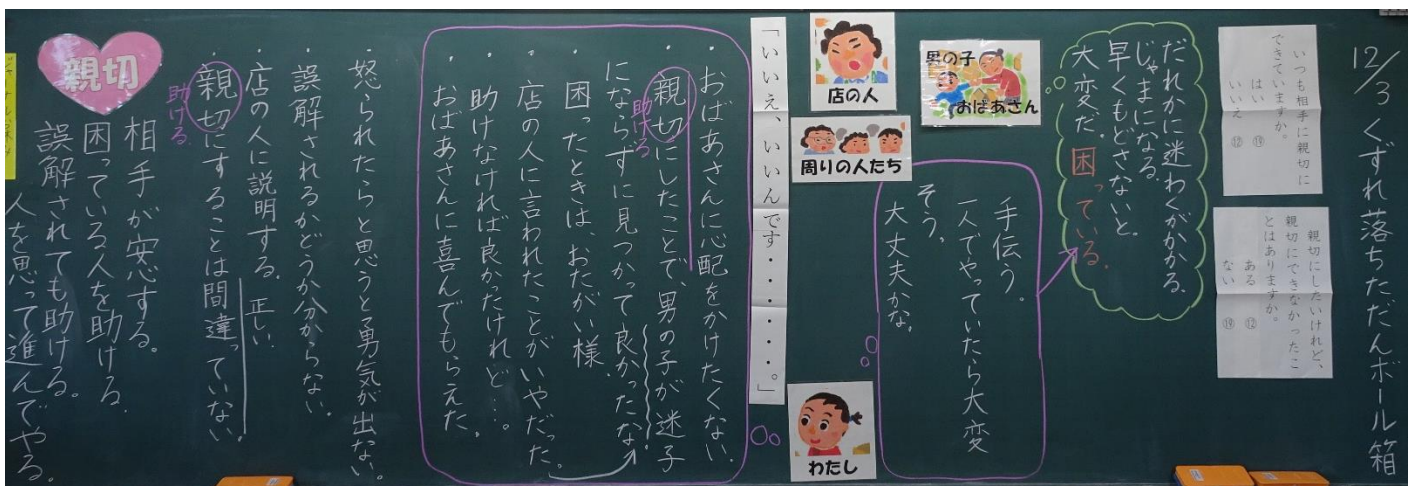 12/3 くずれ落ちただんボール箱
いつも相手に親切に
できていますか。
はい ⑲
いいえ ⑫
親切にしたいけれど、
親切にできなかったこ
とはありますか。
ある ⑫
ない ⑲
だれかに迷わくがかかる。
じゃまになる。
早くもどさないと。
大変だ。困っている。
男の子
おばあさん
手伝う。
一人でやっていたら大変
そう。
大丈夫かな。
店の人
周りの人たち
わたし
「いいえ、いいんです・・・・・・。」
・おばあさんに心配をかけたくない。
・親切にしたことで、男の子が迷子
助ける
にならずに見つかって良かったな。
・困ったときは おたがい様。
・店の人に言われたことがいやだった。
・助けなければ良かったけれど…。
・おばあさんに喜んでもらえた。
・怒られたらと思うと勇気が出ない。
・誤解されるかどうか分からない。
・店の人に説明する。正しい
・親切にすることは間違っていない。
助ける
親切
相手が安心する。
困っている人を助ける。
誤解されても助ける。
人を思って進んでやる。